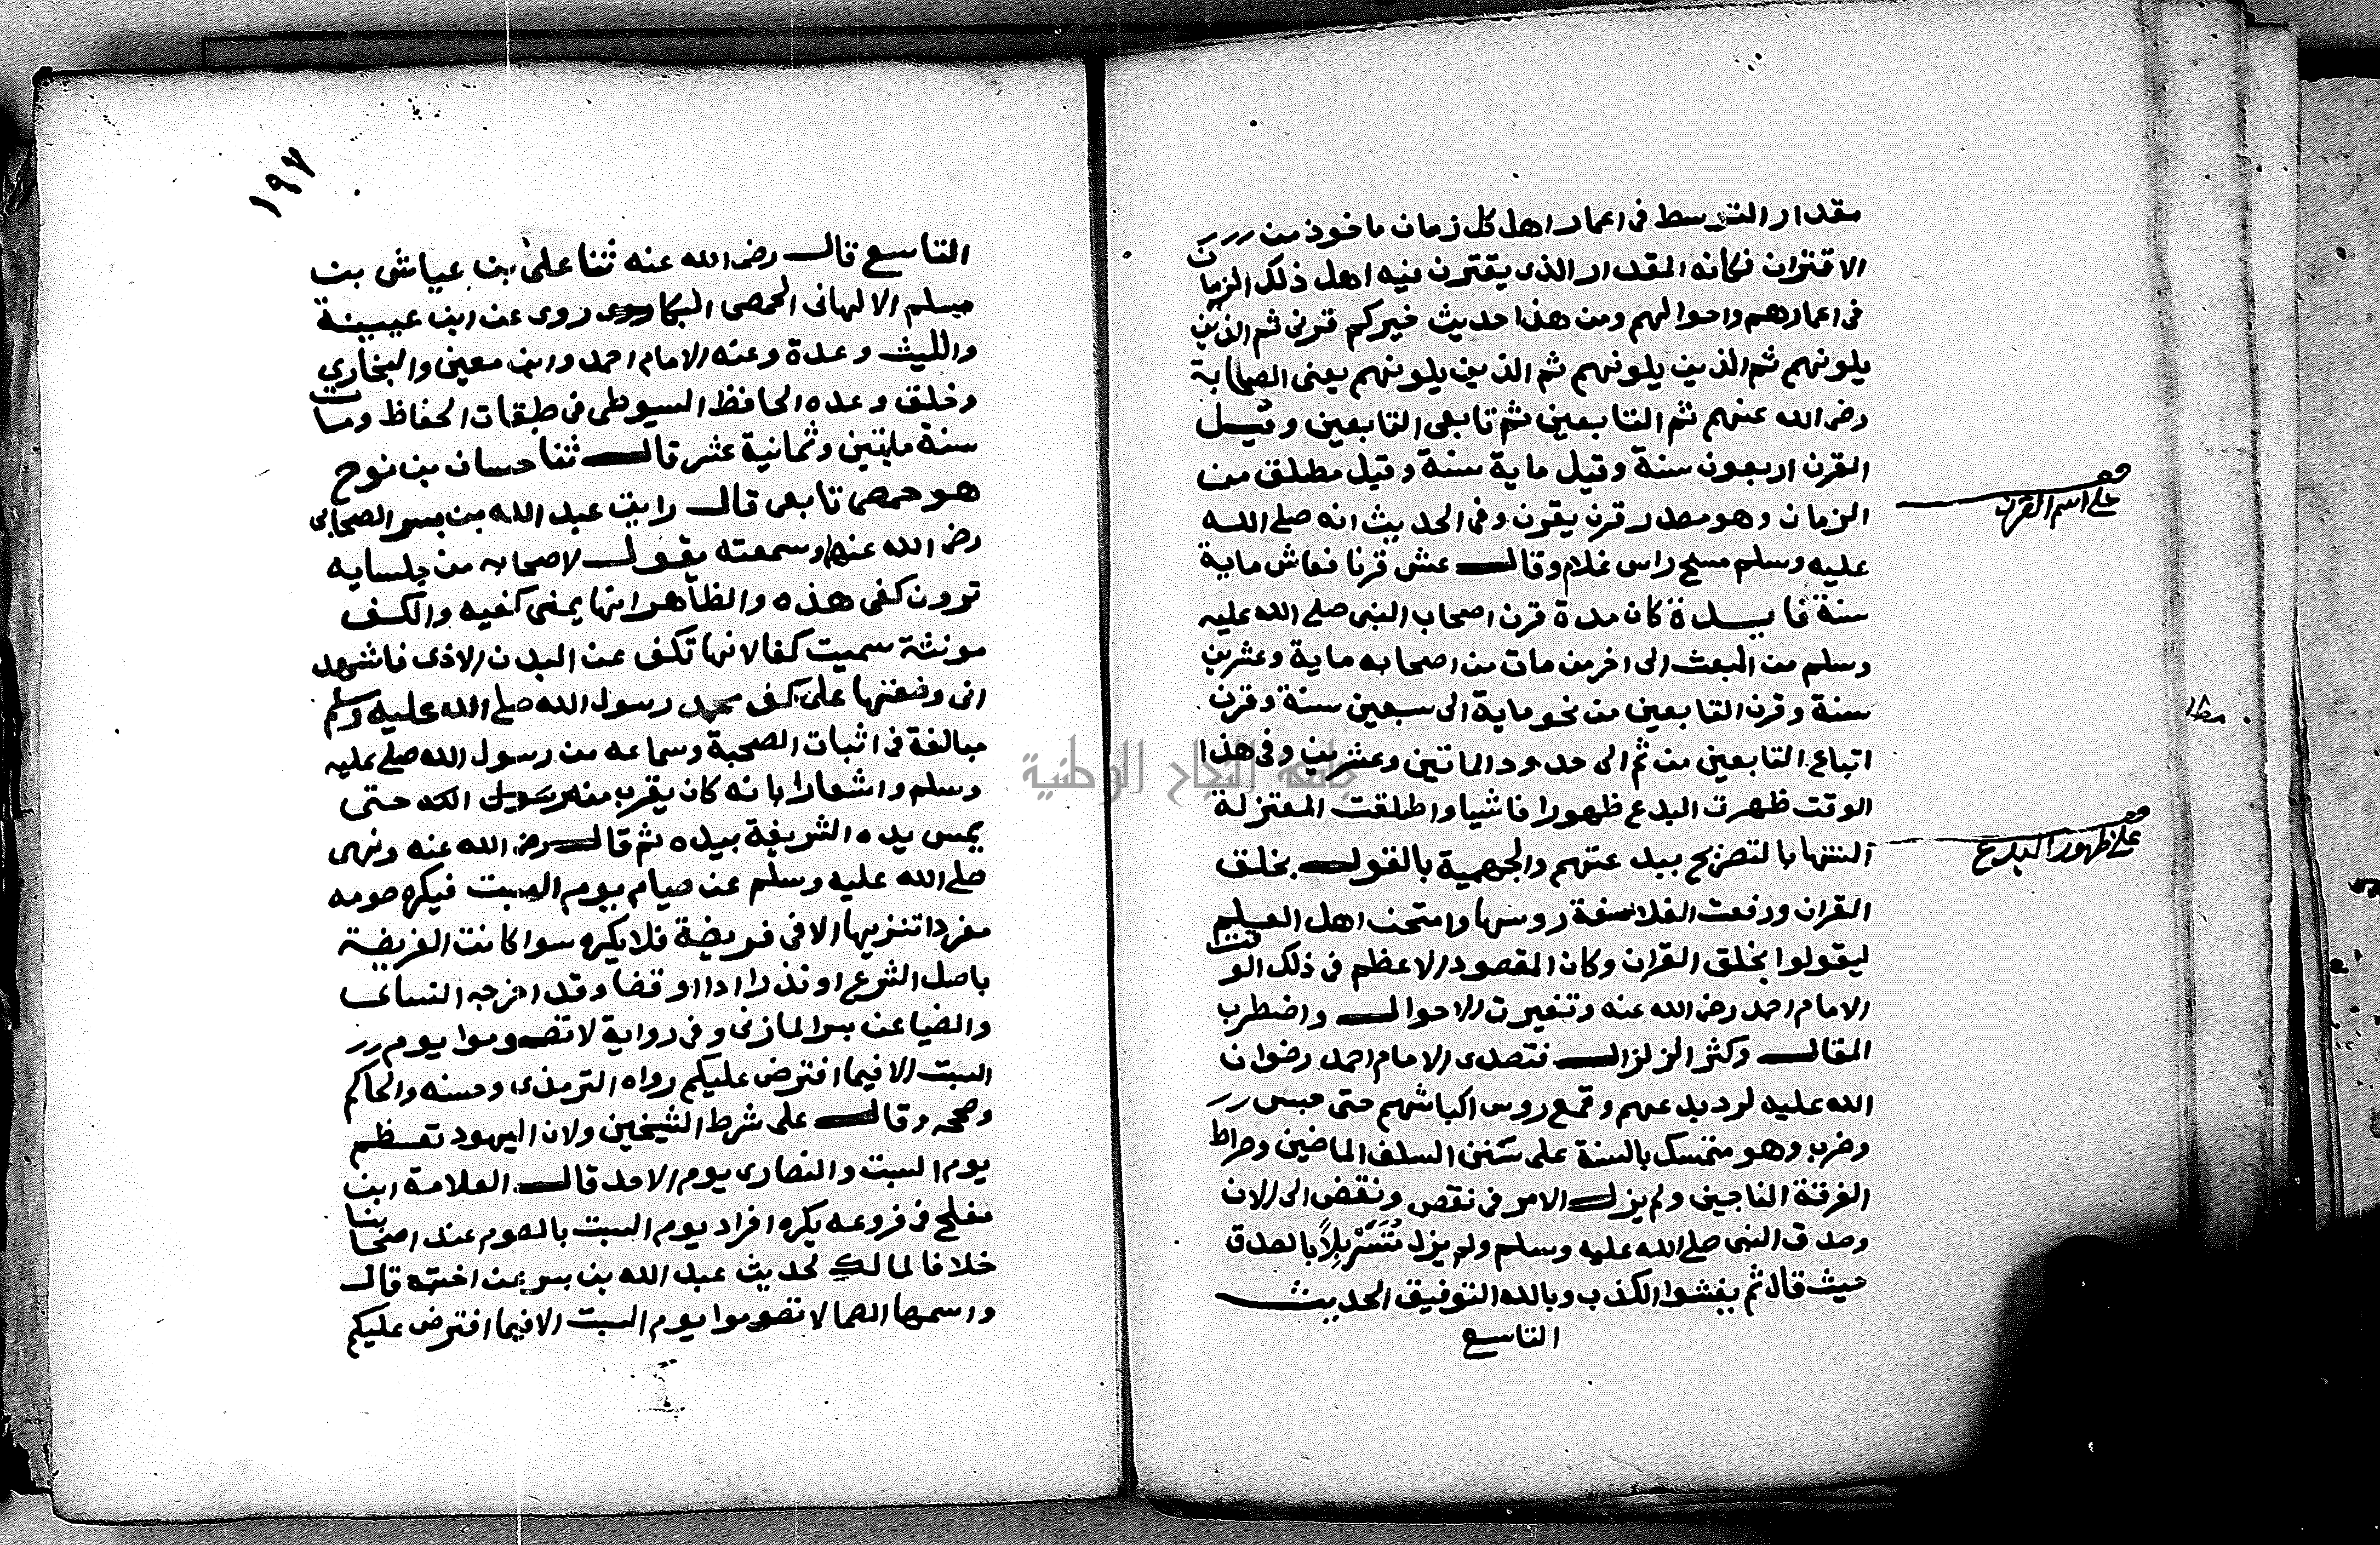 مقدار التوسط فى اعمار اهل كل زمان ماخوذ من
الاقتران فكانه المقدار الذى يقترن فيه اهل ذلك الزمان
فى اعمارهم واحوالهم ومن هذا حديث خيركم قرنى ثم الذين
يلونهم ثم الذين يلونهم ثم الذين يلونهم يعنى الصحابة
رضى الله عنهم ثم التابعين ثم تابعى التابعين وقيل
القرن اربعون سنة وقيل ماية سنة وقيل مطلق من
الزمان وهو مصدر قرن يقرن وفى الحديث انه صلى الله
عليه وسلم مسح راس غلام وقال عش قرنا فعاش ماية
سنة فايدة كان مدة قرن اصحاب النبى صلى الله عليه
وسلم من المبعث الى اخر من مات من اصحابه ماية وعشرين
سنة وقرن التابعين من نحو ماية الى سبعين سنة وقرن
اتباع التابعين من ثم الى حدود الماتين وعشرين وفى هذا
الوقت ظهرت البدع ظهورا فاشيا واطلقت المعتزلة
السنتها بالتصريح ببدعتهم والجهمية بالقول بخلق
القران ورفعت الفلاسفة روسها وامتحن اهل العلم
ليقولوا بخلق القران وكان المقصود الاعظم فى ذلك الوقت
الامام احمد رضى الله عنه وتغيرت الاحوال واضطرب
المقال وكثر الزلزال فتصدى الامام احمد رضوان
الله عليه لرد بدعهم وقمع روس اكباشهم حتى حبس
وضرب وهو متمسك بالسنة على سَنن السلف الماضين وصراط
الفرقة الناجين ولم يزل الامر فى نقص ونقض الى الان
وصدق النبى صلى الله عليه وسلم ولم يزل مُتَسَرْبِلاً بالصدق
حيث قال ثم يفشوا الكذب وبالله التوفيق الحديث
التاسع
قف
على اسم القرن
قف
على ظهور البدع
١٩٧
التاسع قال رضى الله عنه ثنا على بن عياش بن
مسلم الالهانى الحمصى البكا روى عن ابن عيينة
والليث وعدة وعنه الامام احمد وابن معين والبخارى
وخلق وعده الحافظ السيوطى فى طبقات الحفاظ ومات
سنة مايتين وثمانية عشر قال ثنا حسان بن نوح
هو حمصى تابعى قال رايت عبد الله بن بسر الصحابى
رضى الله عنهما وسمعته يقول لاصحابه من جلسايه
ترون كفى هذه والظاهر انها يمنى كفيه والكف
مونثة سميت كفا لانها تكف عن البدن الاذى فاشهد
انى وضعتها على كف محمد رسول الله صلى الله عليه وسلم
مبالغة فى اثبات الصحبة وسماعه من رسول الله صلى عليه
وسلم واشعارا بانه كان يقرب منه رسول الله حتى
يمس يده الشريفة بيده ثم قال رضى الله عنه ونهى
صلى الله عليه وسلم عن صيام يوم السبت فيكره صومه
مفردا تنزيها الا فى فريضة فلا يكره سوا كانت الفريضة
باصل الشرع او نذرا ادا او قضا وقد اخرجه النساى
والضيا عن بسر المازنى وفى رواية لا تصوموا يوم
السبت الا فيما افترض عليكم رواه الترمذى وحسنه والحاكم
وصححه وقال على شرط الشيخين ولان اليهود تعظم
يوم السبت والنصارى يوم الاحد قال العلامة ابن
مفلح فى فروعه يكره افراد يوم السبت بالصوم عند اصحابنا
خلافا لمالك لحديث عبد الله بن بسر عن اخته قال
واسمها الصما لا تصوموا يوم السبت الا فيما افترض عليكم
جامعة النجاح الوطنية